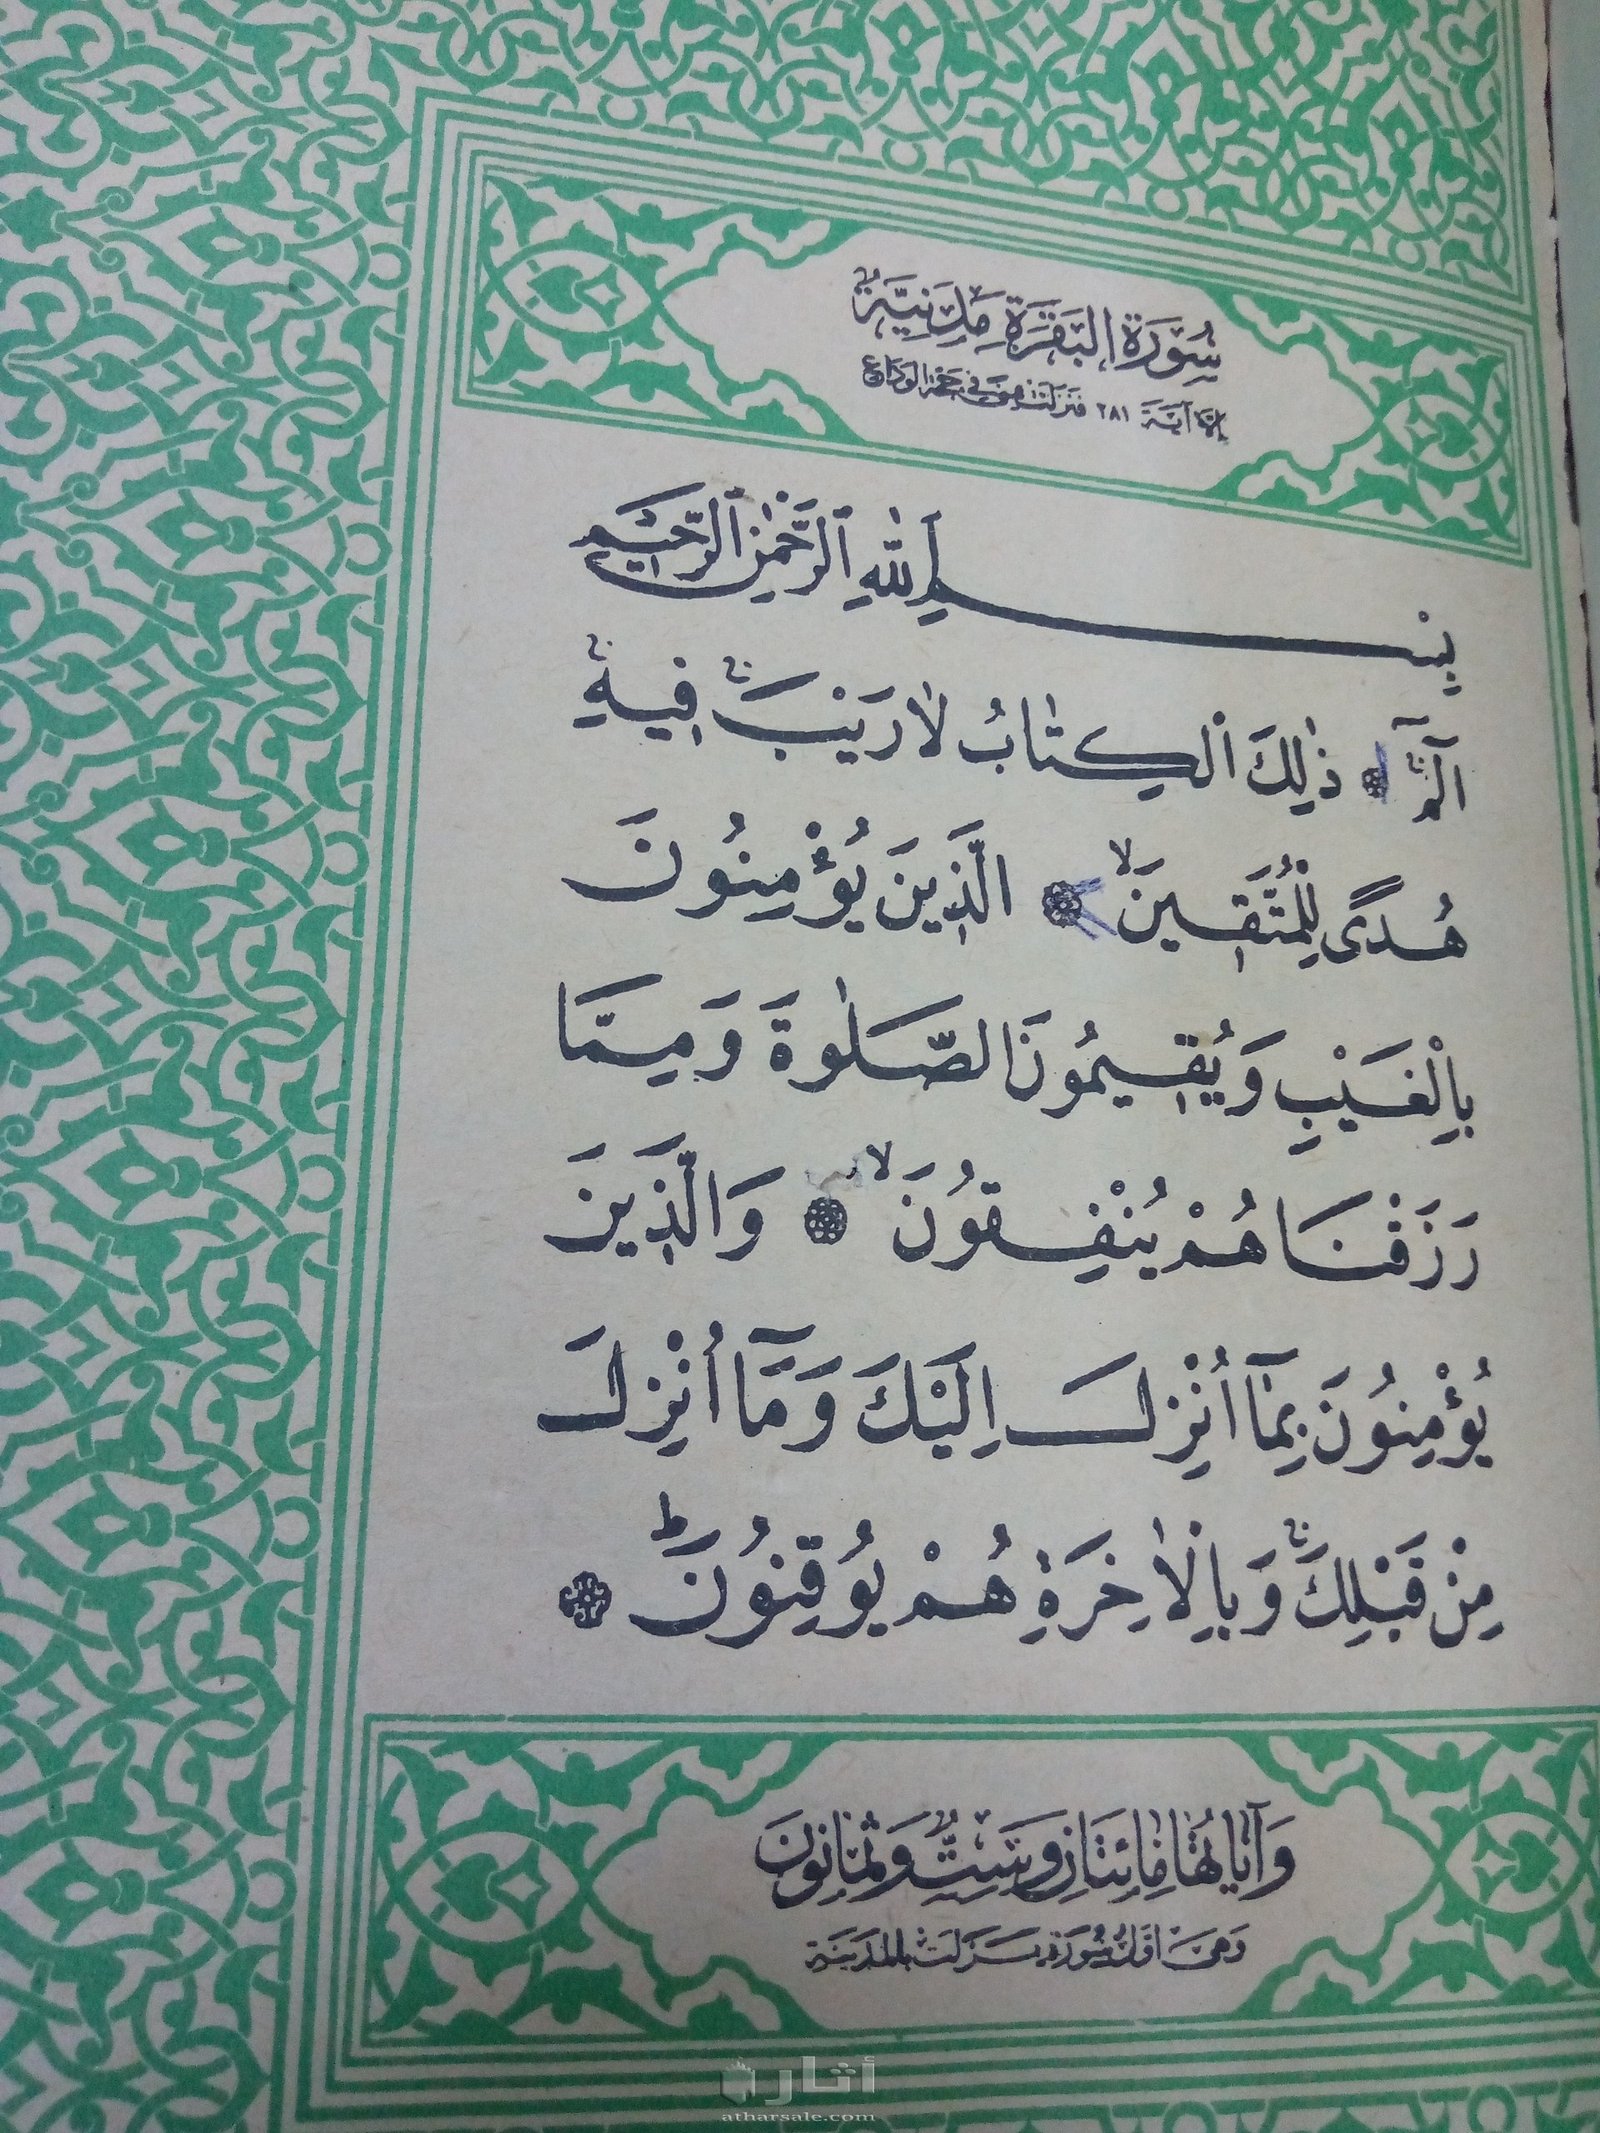 سُورَةُ الْبَقَرَةِ مَدَنِيَّةٌ
إِلَّا آيَةَ ٢٨١ فَنَزَلَتْ بِمِنًى فِي حَجَّةِ الْوَدَاعِ
بِسْمِ اللّٰهِ الرَّحْمٰنِ الرَّحِيمِ
الٓمٓ ۚ ۞ ذٰلِكَ الْكِتَابُ لَا رَيْبَ ۛ فِيهِ ۛ
هُدًى لِلْمُتَّقِينَ ۙ ۞ الَّذِينَ يُؤْمِنُونَ
بِالْغَيْبِ وَيُقِيمُونَ الصَّلٰوةَ وَمِمَّا
رَزَقْنَاهُمْ يُنْفِقُونَ ۙ ۞ وَالَّذِينَ
يُؤْمِنُونَ بِمَٓا اُنْزِلَ اِلَيْكَ وَمَٓا اُنْزِلَ
مِنْ قَبْلِكَ ۚ وَبِالْاٰخِرَةِ هُمْ يُوقِنُونَ ۜ ۞
وَآيَاتُهَا مِائَتَانِ وَسِتٌّ وَثَمَانُونَ
وَهِيَ أَوَّلُ سُورَةٍ نَزَلَتْ بِالْمَدِينَةِ
أثار
atharsale.com